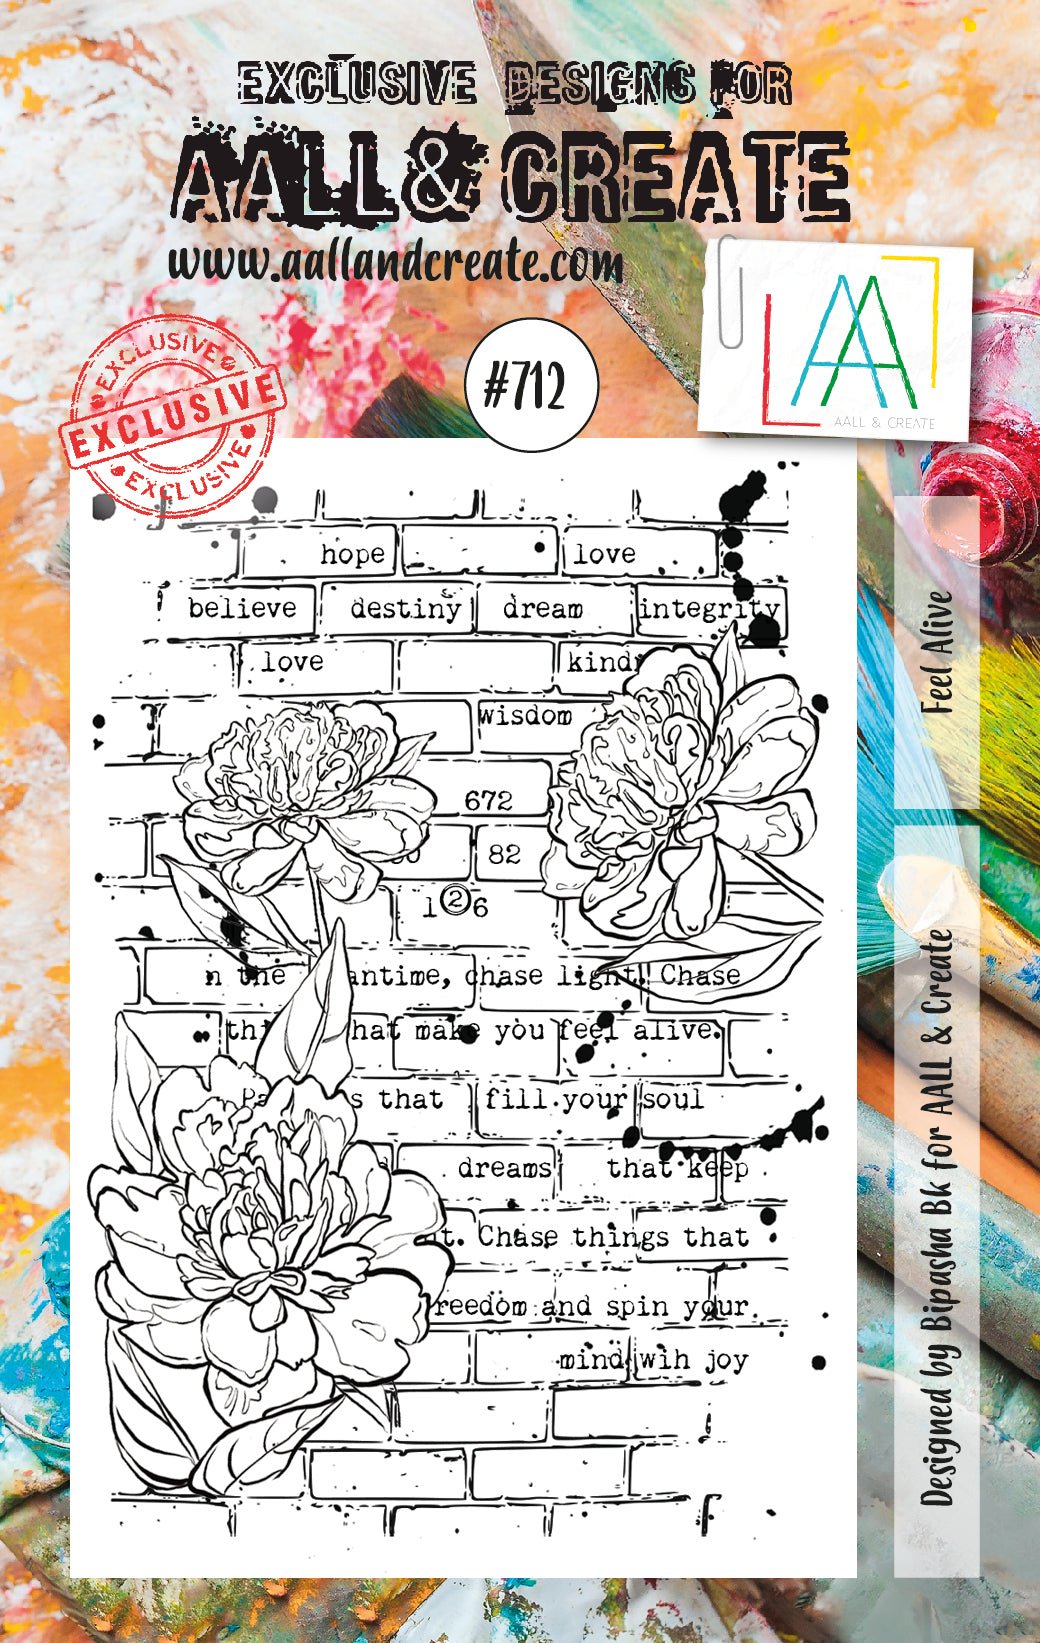 EXCLUSIVE DESIGNS FOR
AALL& CREATE
www.aallandcreate.com
EXCLUSIVE
EXCLUSIVE
EXCLUSIVE
#712
AA
AALL & CREATE
hope love
believe destiny dream integrity
love kind
wisdom
672
82
1 2 6
n the antime, chase light. Chase
thi hat make you feel alive.
Pa s that fill your soul
dreams that keep
t. Chase things that
reedom and spin your
mind wih joy
Feel Alive
Designed by Bipasha Bk for AALL & Create